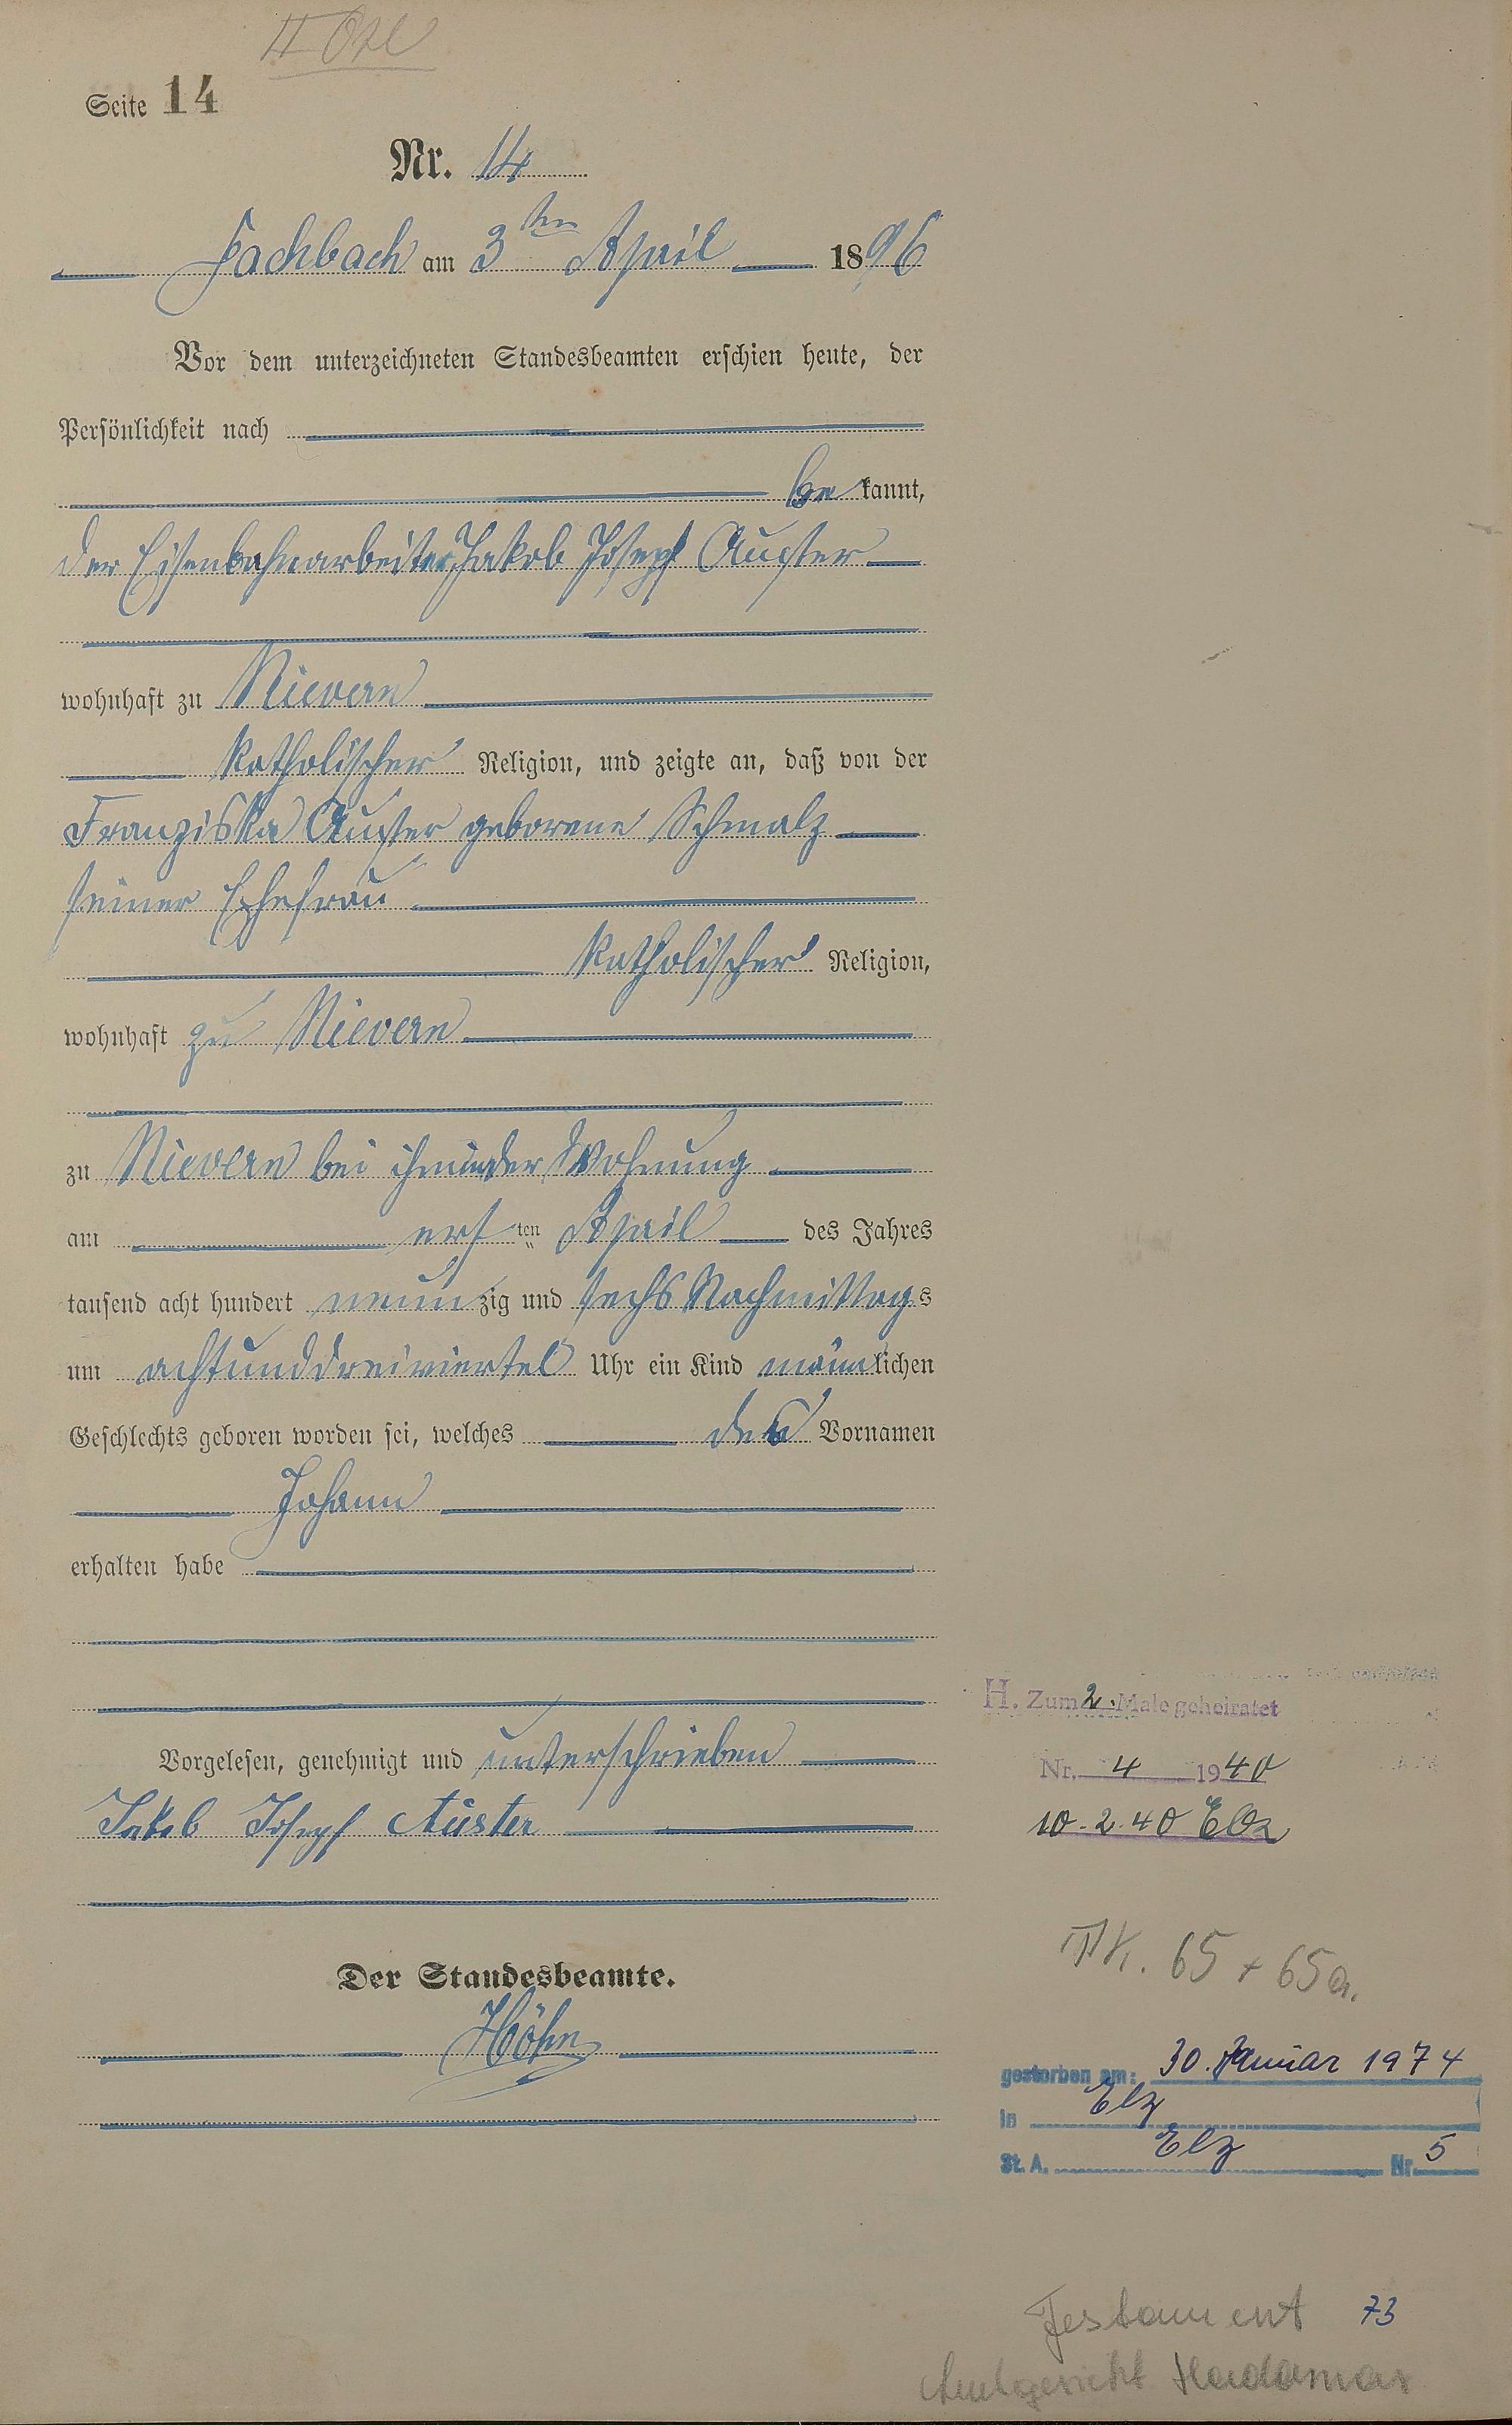 Seite 14
Nr. 14
Fachbach am 3ten April 1896
Vor dem unterzeichneten Standesbeamten erschien heute, der
Persönlichkeit nach
be kannt,
der Eisenbahnarbeiter Jakob Joseph Auster
wohnhaft zu Nievern
katholischer Religion, und zeigte an, daß von der
Franziska Auster geborene Schmalz
seiner Ehefrau
katholischer Religion,
wohnhaft zu Nievern
zu Nievern bei ihm in der Wohnung
am ersten April des Jahres
tausend acht hundert neunzig und sechs Nachmittags
um achtunddreiviertel Uhr ein Kind männlichen
Geschlechts geboren worden sei, welches den Vornamen
Johann
erhalten habe
Vorgelesen, genehmigt und unterschrieben
Jakob Joseph Auster
Der Standesbeamte.
Höhn
H. Zum 2. Male geheiratet
Nr. 4 1940
10.2.40 Elz
65 + 65a.
gestorben am: 30. Januar 1974
in Elz
St. A. Elz Nr. 5
Testament 73
Amtsgericht Hadamar